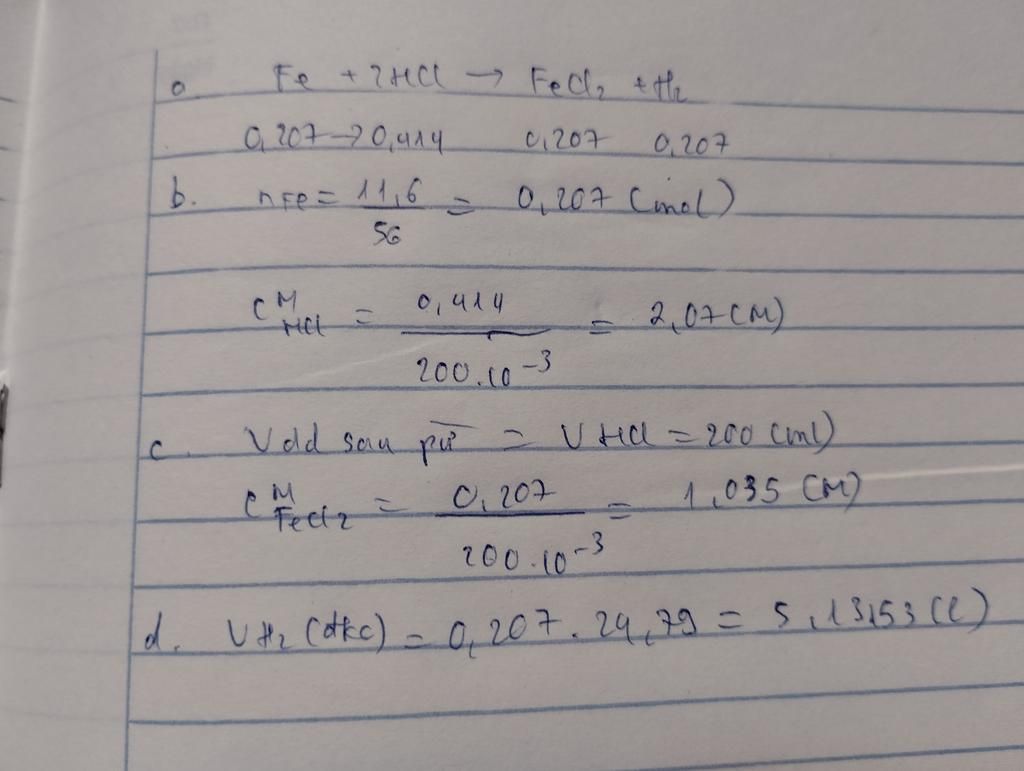 a. Fe + 2HCl → FeCl₂ + H₂
0,207 → 0,414 0,207 0,207
b. nFe = 11,6 / 56 = 0,207 (mol)
CM HCl = 0,414 / 200.10⁻³ = 2,07 (M)
c. Vdd sau pứ = VHCl = 200 (ml)
CM FeCl₂ = 0,207 / 200.10⁻³ = 1,035 (M)
d. VH₂ (đkc) = 0,207 . 24,79 = 5,13153 (l)